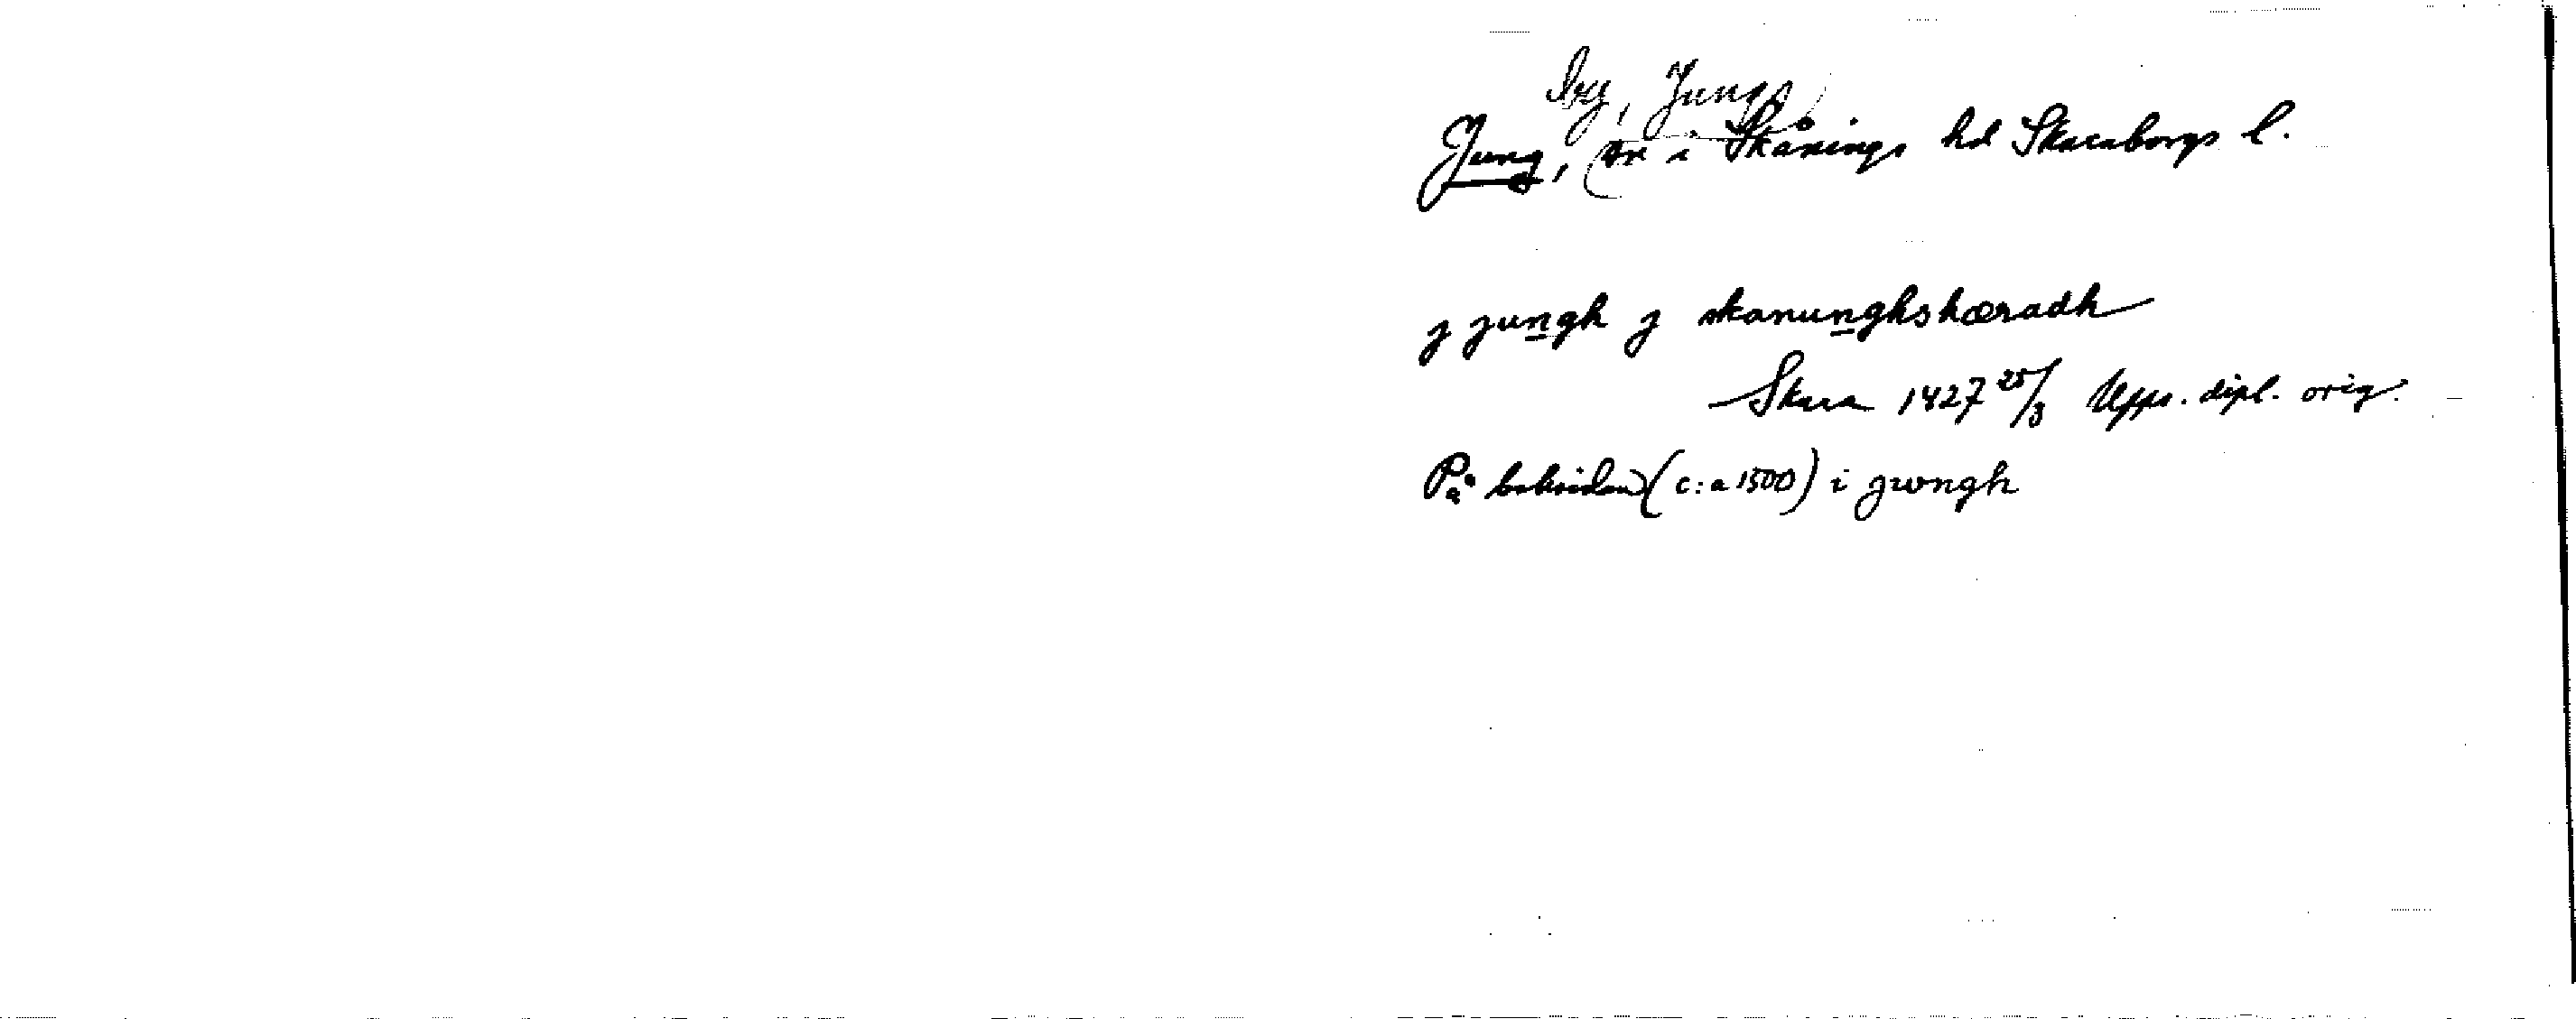 by, Jungs
Jung, sn i Skånings hd Skaraborgs l.
j jungh j skanunghshæradh
Skara 1427 25/3 Upps. dipl. orig.
På baksidan (c:a 1500) i jwngh